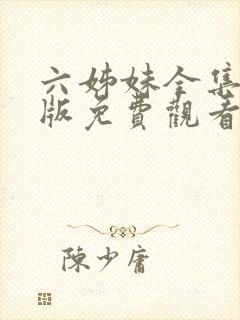 六姊妹全集
版免費觀看
陳少庸